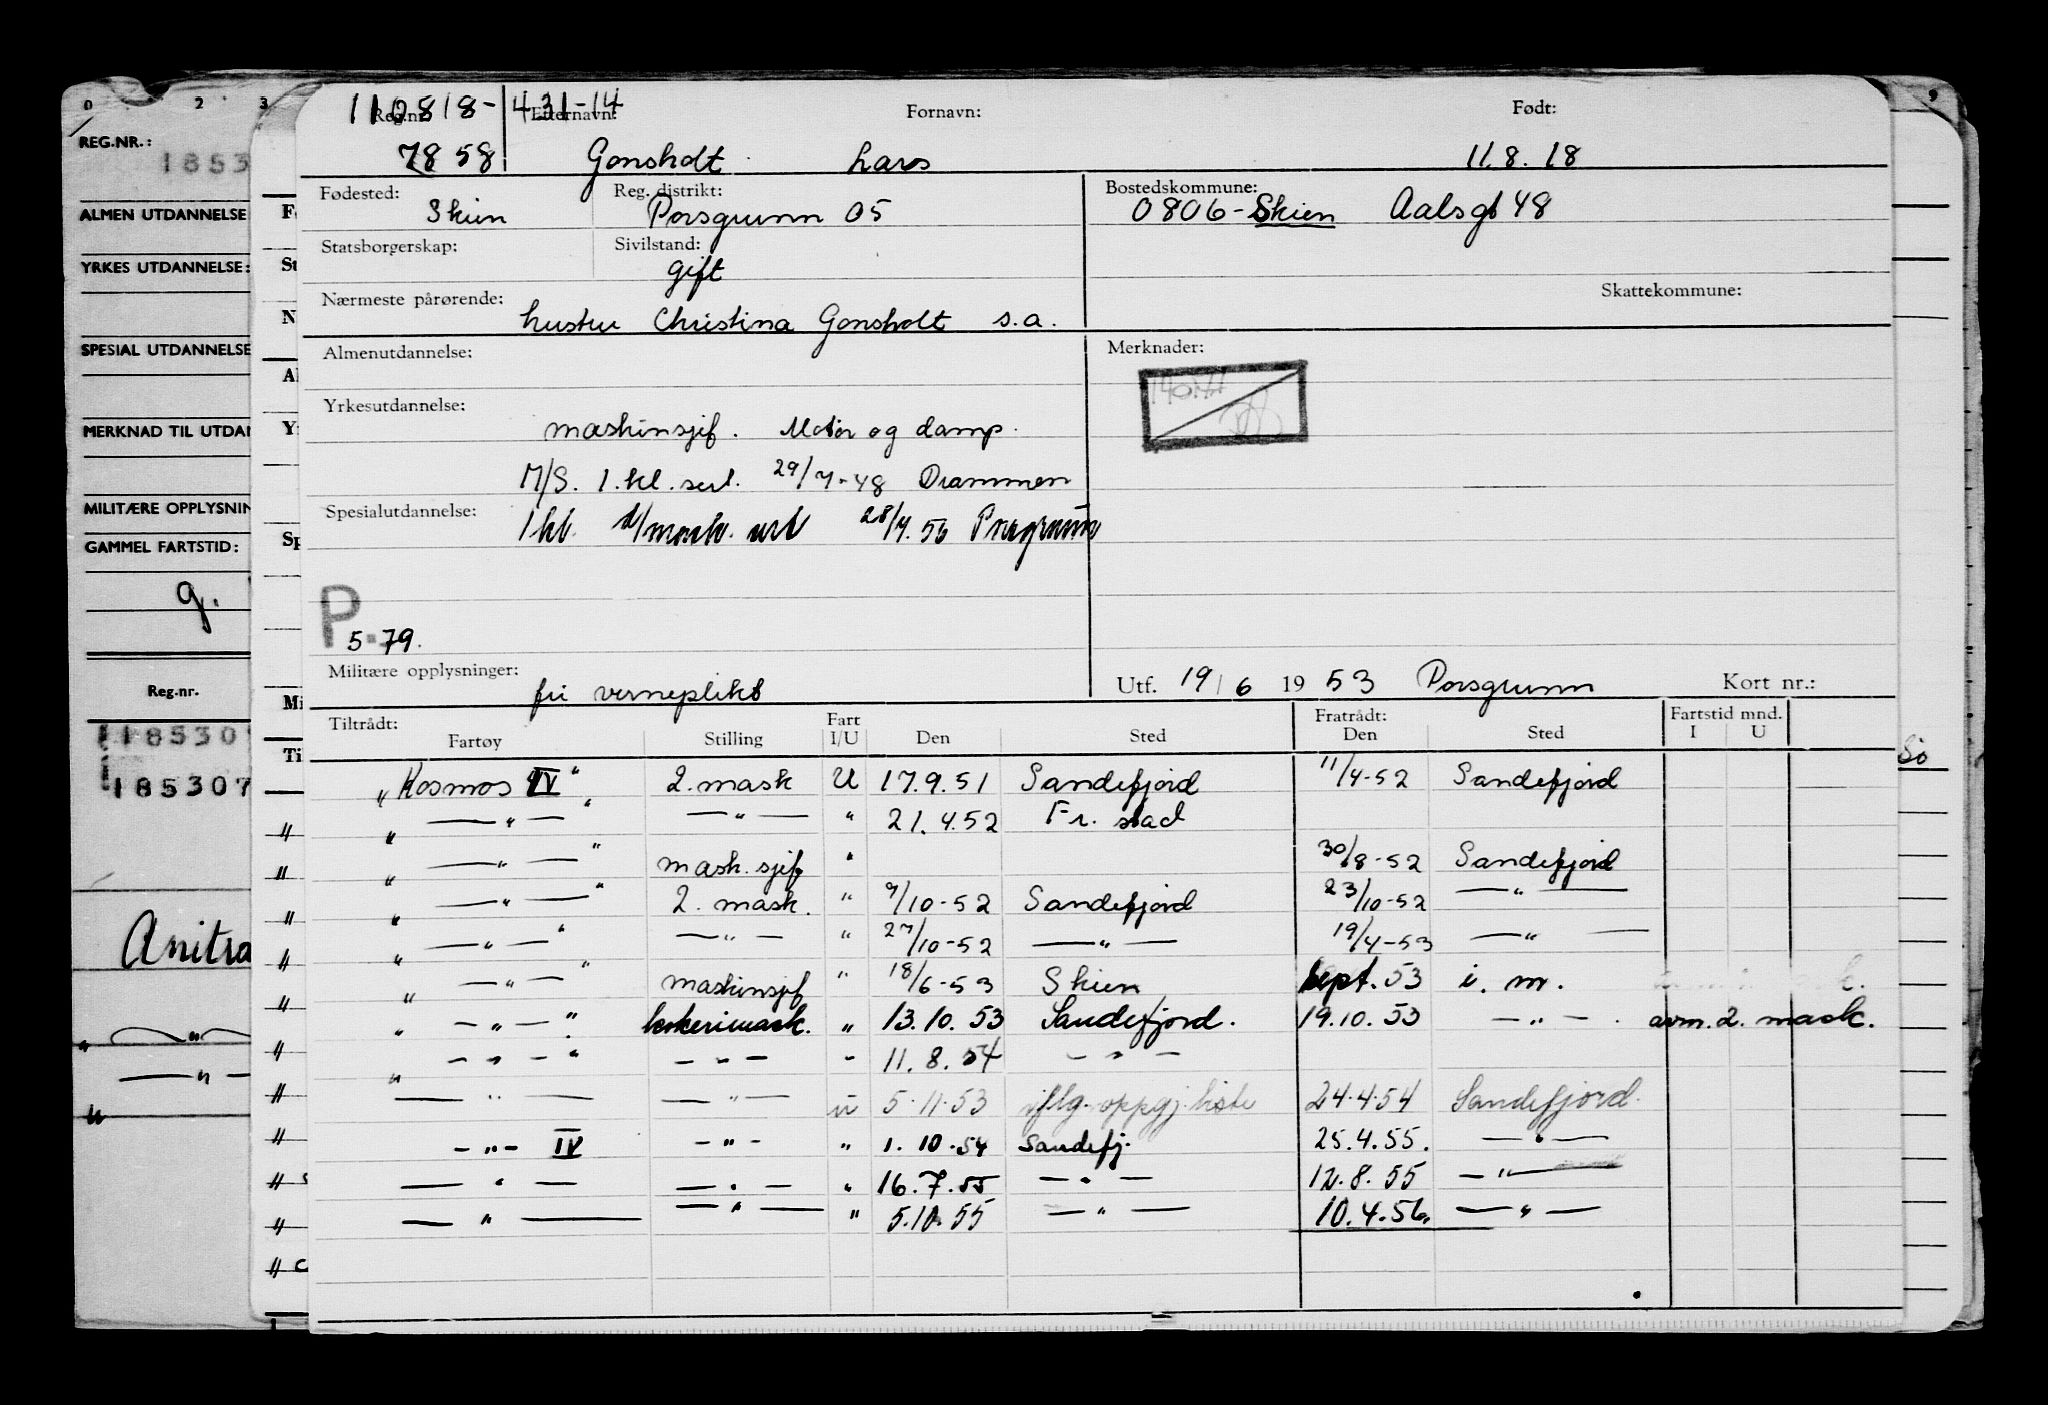 0 2 3
110818-431-14
Reg.nr. Etternavn: Fornavn: Født:
7858 Gonsholt Lars 11.8.18
Fødested: Reg. distrikt: Bostedskommune:
Skien Porsgrunn 05 0806-Skien Aalsgt 48
Statsborgerskap: Sivilstand:
gift
Nærmeste pårørende: Skattekommune:
hustru Christina Gonsholt s.a.
Almenutdannelse: Merknader:
Yrkesutdannelse:
maskinsjef. Motor og damp.
M/S. 1. kl. sert. 29/7-48 Drammen
Spesialutdannelse:
1 kl. d/mask. sert 28/4.53 Porsgrunn
P
5.79.
Militære opplysninger: fri verneplikt
Utf. 19/6 1953 Porsgrunn Kort nr.:
Tiltrådt: Fratrådt: Fartstid mnd.
Fartøy Stilling Fart I/U Den Sted Den Sted I U
"Kosmos IV" 2. mask U 17.9.51 Sandefjord 11/4-52 Sandefjord
" —"— " —"— " 21.4.52 Fr. stad
" —"— " mask. sjef " 30/8-52 Sandefjord
" —"— " 2. mask. " 9/10-52 Sandefjord 23/10-52 —"—
" —"— " —"— " 27/10-52 —"— 19/4-53 —"—
" —"— " maskinsjef " 18/6-53 Skien Sept. 53 i. m.
" —"— " kokerimask. " 13.10.53 Sandefjord. 19.10.53 —"—. avm. 2. mask.
" —"— " —"— " 11.8.54 —"—
—"— —"— U 5.11.53 iflg. oppgj. liste 24.4.54 Sandefjord.
—"— IV —"— " 1.10.54 Sandefj. 25.4.55. —"—
—"— —"— " 16.7.55 —"— 12.8.55 —"—
—"— —"— " 5.10.55 —"— 10.4.56. —"—
REG.NR.:
1853
ALMEN UTDANNELSE
YRKES UTDANNELSE:
SPESIAL UTDANNELSE
MERKNAD TIL UTDAN
MILITÆRE OPPLYSNIN
GAMMEL FARTSTID:
g.
Reg.nr.
185307
185307
Anitra
"—"—
—"—
"
St
N
Al
Sp
Mi
Ti